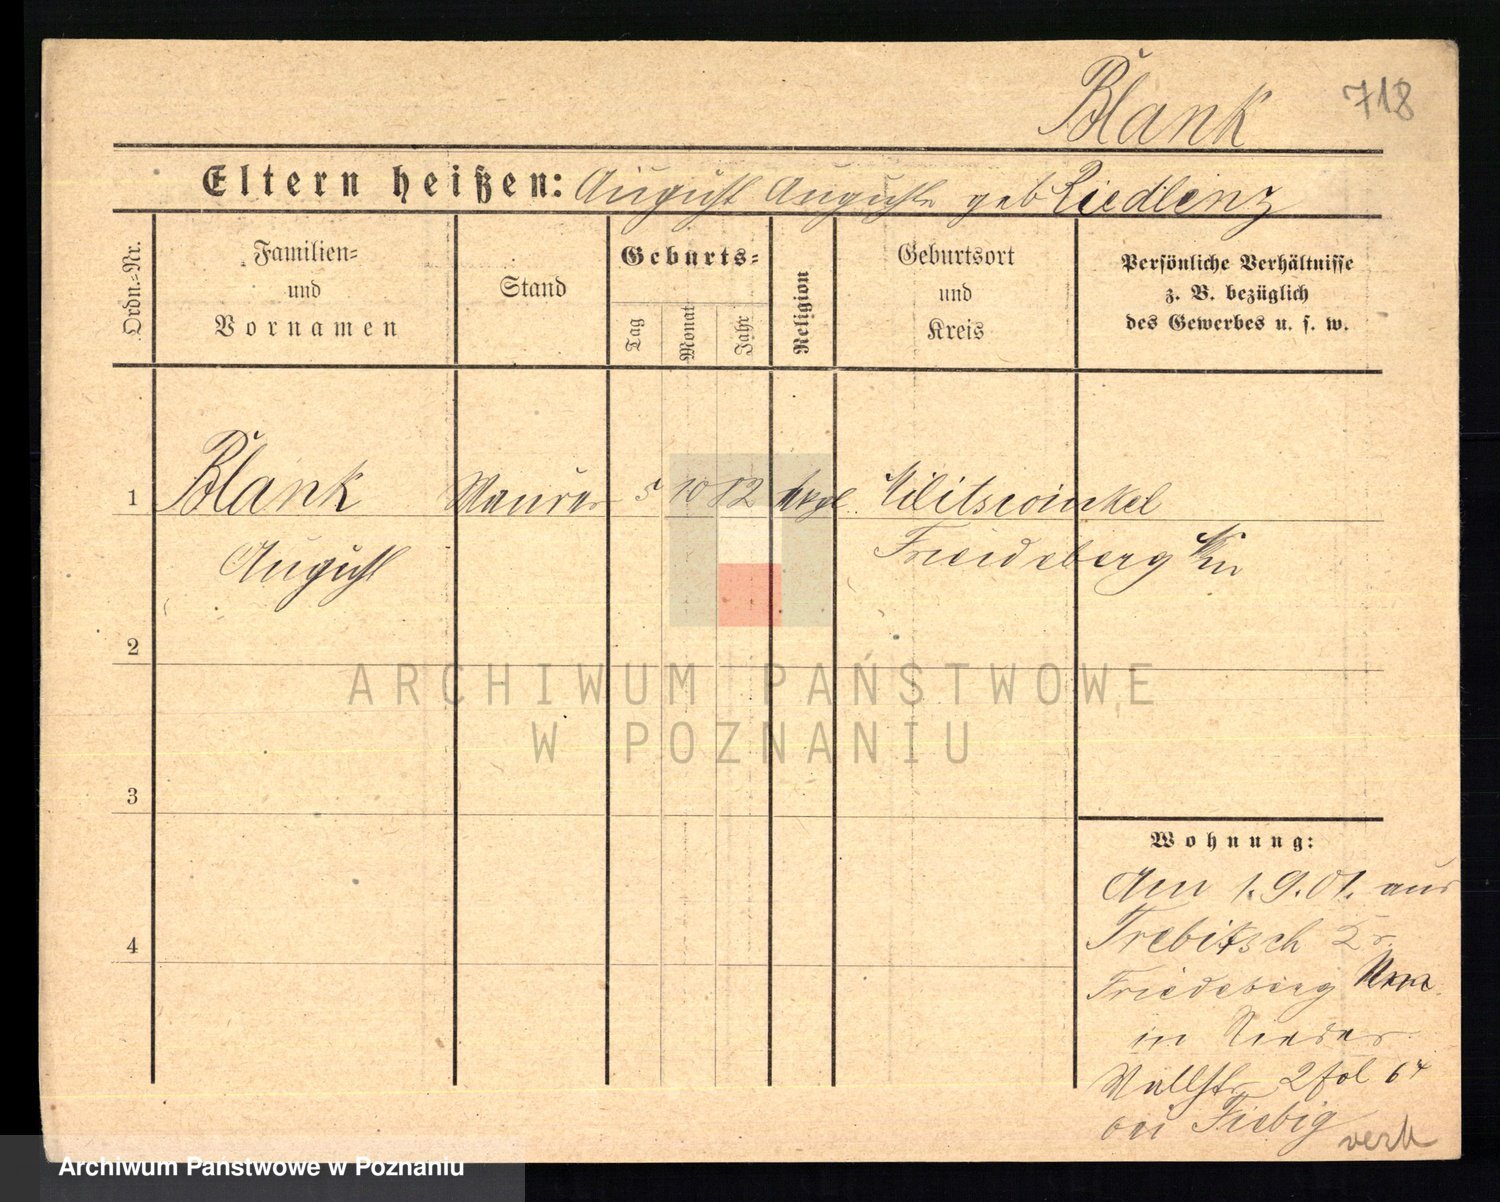 Blank 718
Eltern heißen: August Auguste geb Riedlenz
Ordn.-Nr.
Familien-
und
Vornamen
Stand
Geburts-
Tag
Monat
Jahr
Religion
Geburtsort
und
Kreis
Persönliche Verhältnisse
z. B. bezüglich
des Gewerbes u. s. w.
1 Blank Maurer 5 10 82 evgl.
August Friedeberg Nm
2
3
4
ARCHIWUM PAŃSTWOWE
W POZNANIU
Wohnung:
Am 1.9.01. aus
Trebitsch Kr.
Friedeberg Nm
in
Wallstr 2 fol 64
bei Fiebig
verh
Archiwum Państwowe w Poznaniu